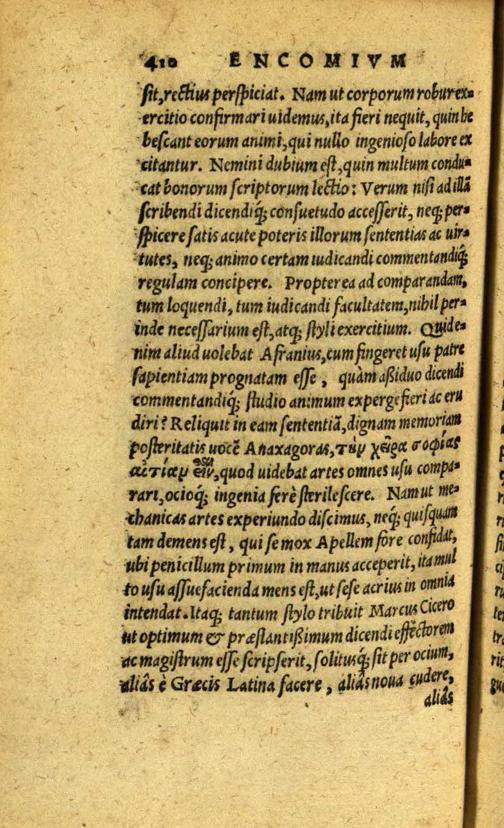 410 ENCOMIVM
sit, rectius perspiciat. Nam ut corporum robur ex=
ercitio confirmari uidemus, ita fieri nequit, quin he
bescant eorum animi, qui nullo ingenioso labore ex
citantur. Nemini dubium est, quin multum condu=
cat bonorum scriptorum lectio: Verum nisi ad illã
scribendi dicendiq́; consuetudo accesserit, neq; per=
spicere satis acute poteris illorum sententias ac uir=
tutes, neq; animo certam iudicandi commentandiq́;
regulam concipere. Propterea ad comparandam,
tum loquendi, tum iudicandi facultatem, nihil per=
inde necessarium est, atq; styli exercitium. Quid e=
nim aliud uolebat Afranius, cum fingeret usu patre
sapientiam prognatam esse, quàm aßiduo dicendi
commentandiq́; studio animum expergefieri ac eru
diri? Reliquit in eam sententiã, dignam memoriam
posteritatis uocẽ Anaxagoras, τὴν χεῖρα σοφίας
αἰτίαν εἶναι, quod uidebat artes omnes usu compa=
rari, ocioq́; ingenia ferè sterilescere. Nam ut me=
chanicas artes experiundo discimus, neq́; quisquam
tam demens est, qui se mox Apellem fore confidat,
ubi penicillum primum in manus acceperit, ita mul
to usu assuefacienda mens est, ut sese acrius in omnia
intendat. Itaq; tantum stylo tribuit Marcus Cicero
ut optimum & præstantißimum dicendi effectorem
ac magistrum esse scripserit, solitusq́; sit per ocium,
aliâs è Græcis Latina facere, aliâs noua cudere,
aliâs